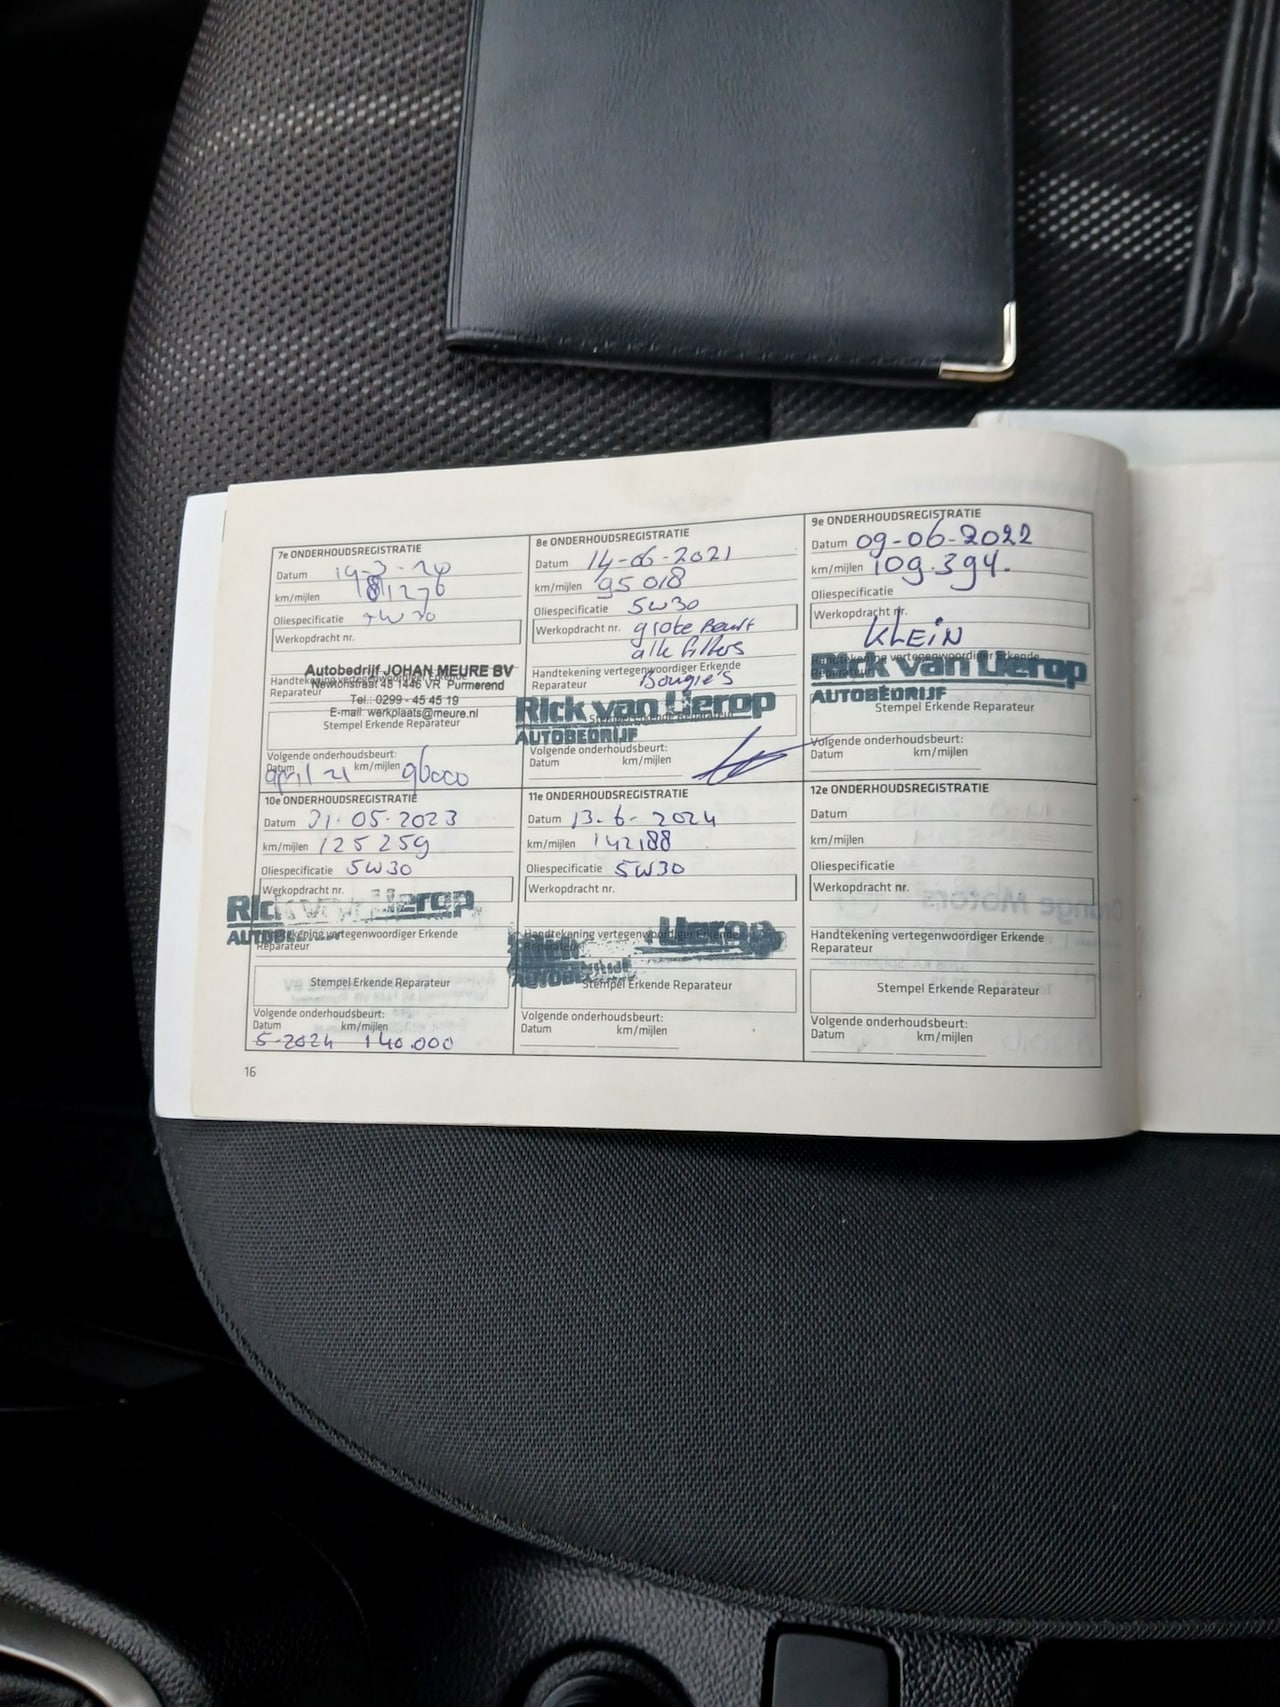 7e ONDERHOUDSREGISTRATIE
Datum
km/mijlen 81276
Oliespecificatie
Werkopdracht nr.
Autobedrijf JOHAN MEURE BV
Handtekening vertegenwoordiger Erkende
Newtonstraat 48 1446 VR Purmerend
Reparateur
Tel.: 0299 - 45 45 19
E-mail: werkplaats@meure.nl
Stempel Erkende Reparateur
Volgende onderhoudsbeurt:
Datum km/mijlen
april 21 96000
8e ONDERHOUDSREGISTRATIE
Datum 14-06-2021
km/mijlen 95018
Oliespecificatie 5W30
Werkopdracht nr. grote Beurt
alle filters
Handtekening vertegenwoordiger Erkende
Reparateur Bougie's
Rick van Lierop
Stempel Erkende Reparateur
AUTOBEDRIJF
Volgende onderhoudsbeurt:
Datum km/mijlen
9e ONDERHOUDSREGISTRATIE
Datum 09-06-2022
km/mijlen 109.394.
Oliespecificatie
Werkopdracht nr.
KLEIN
Handtekening vertegenwoordiger Erkende
Reparateur
Rick van Lierop
AUTOBEDRIJF
Stempel Erkende Reparateur
Volgende onderhoudsbeurt:
Datum km/mijlen
10e ONDERHOUDSREGISTRATIE
Datum 31-05-2023
km/mijlen 125259
Oliespecificatie 5W30
Werkopdracht nr.
Rick van Lierop
AUTOBEDRIJF
Handtekening vertegenwoordiger Erkende
Reparateur
Stempel Erkende Reparateur
Volgende onderhoudsbeurt:
Datum km/mijlen
5-2024 140.000
11e ONDERHOUDSREGISTRATIE
Datum 13-6-2024
km/mijlen 142188
Oliespecificatie 5W30
Werkopdracht nr.
Lierop
Handtekening vertegenwoordiger Erkende
Reparateur
AUTOBEDRIJF
Stempel Erkende Reparateur
Volgende onderhoudsbeurt:
Datum km/mijlen
12e ONDERHOUDSREGISTRATIE
Datum
km/mijlen
Oliespecificatie
Werkopdracht nr.
Handtekening vertegenwoordiger Erkende
Reparateur
Stempel Erkende Reparateur
Volgende onderhoudsbeurt:
Datum km/mijlen
16